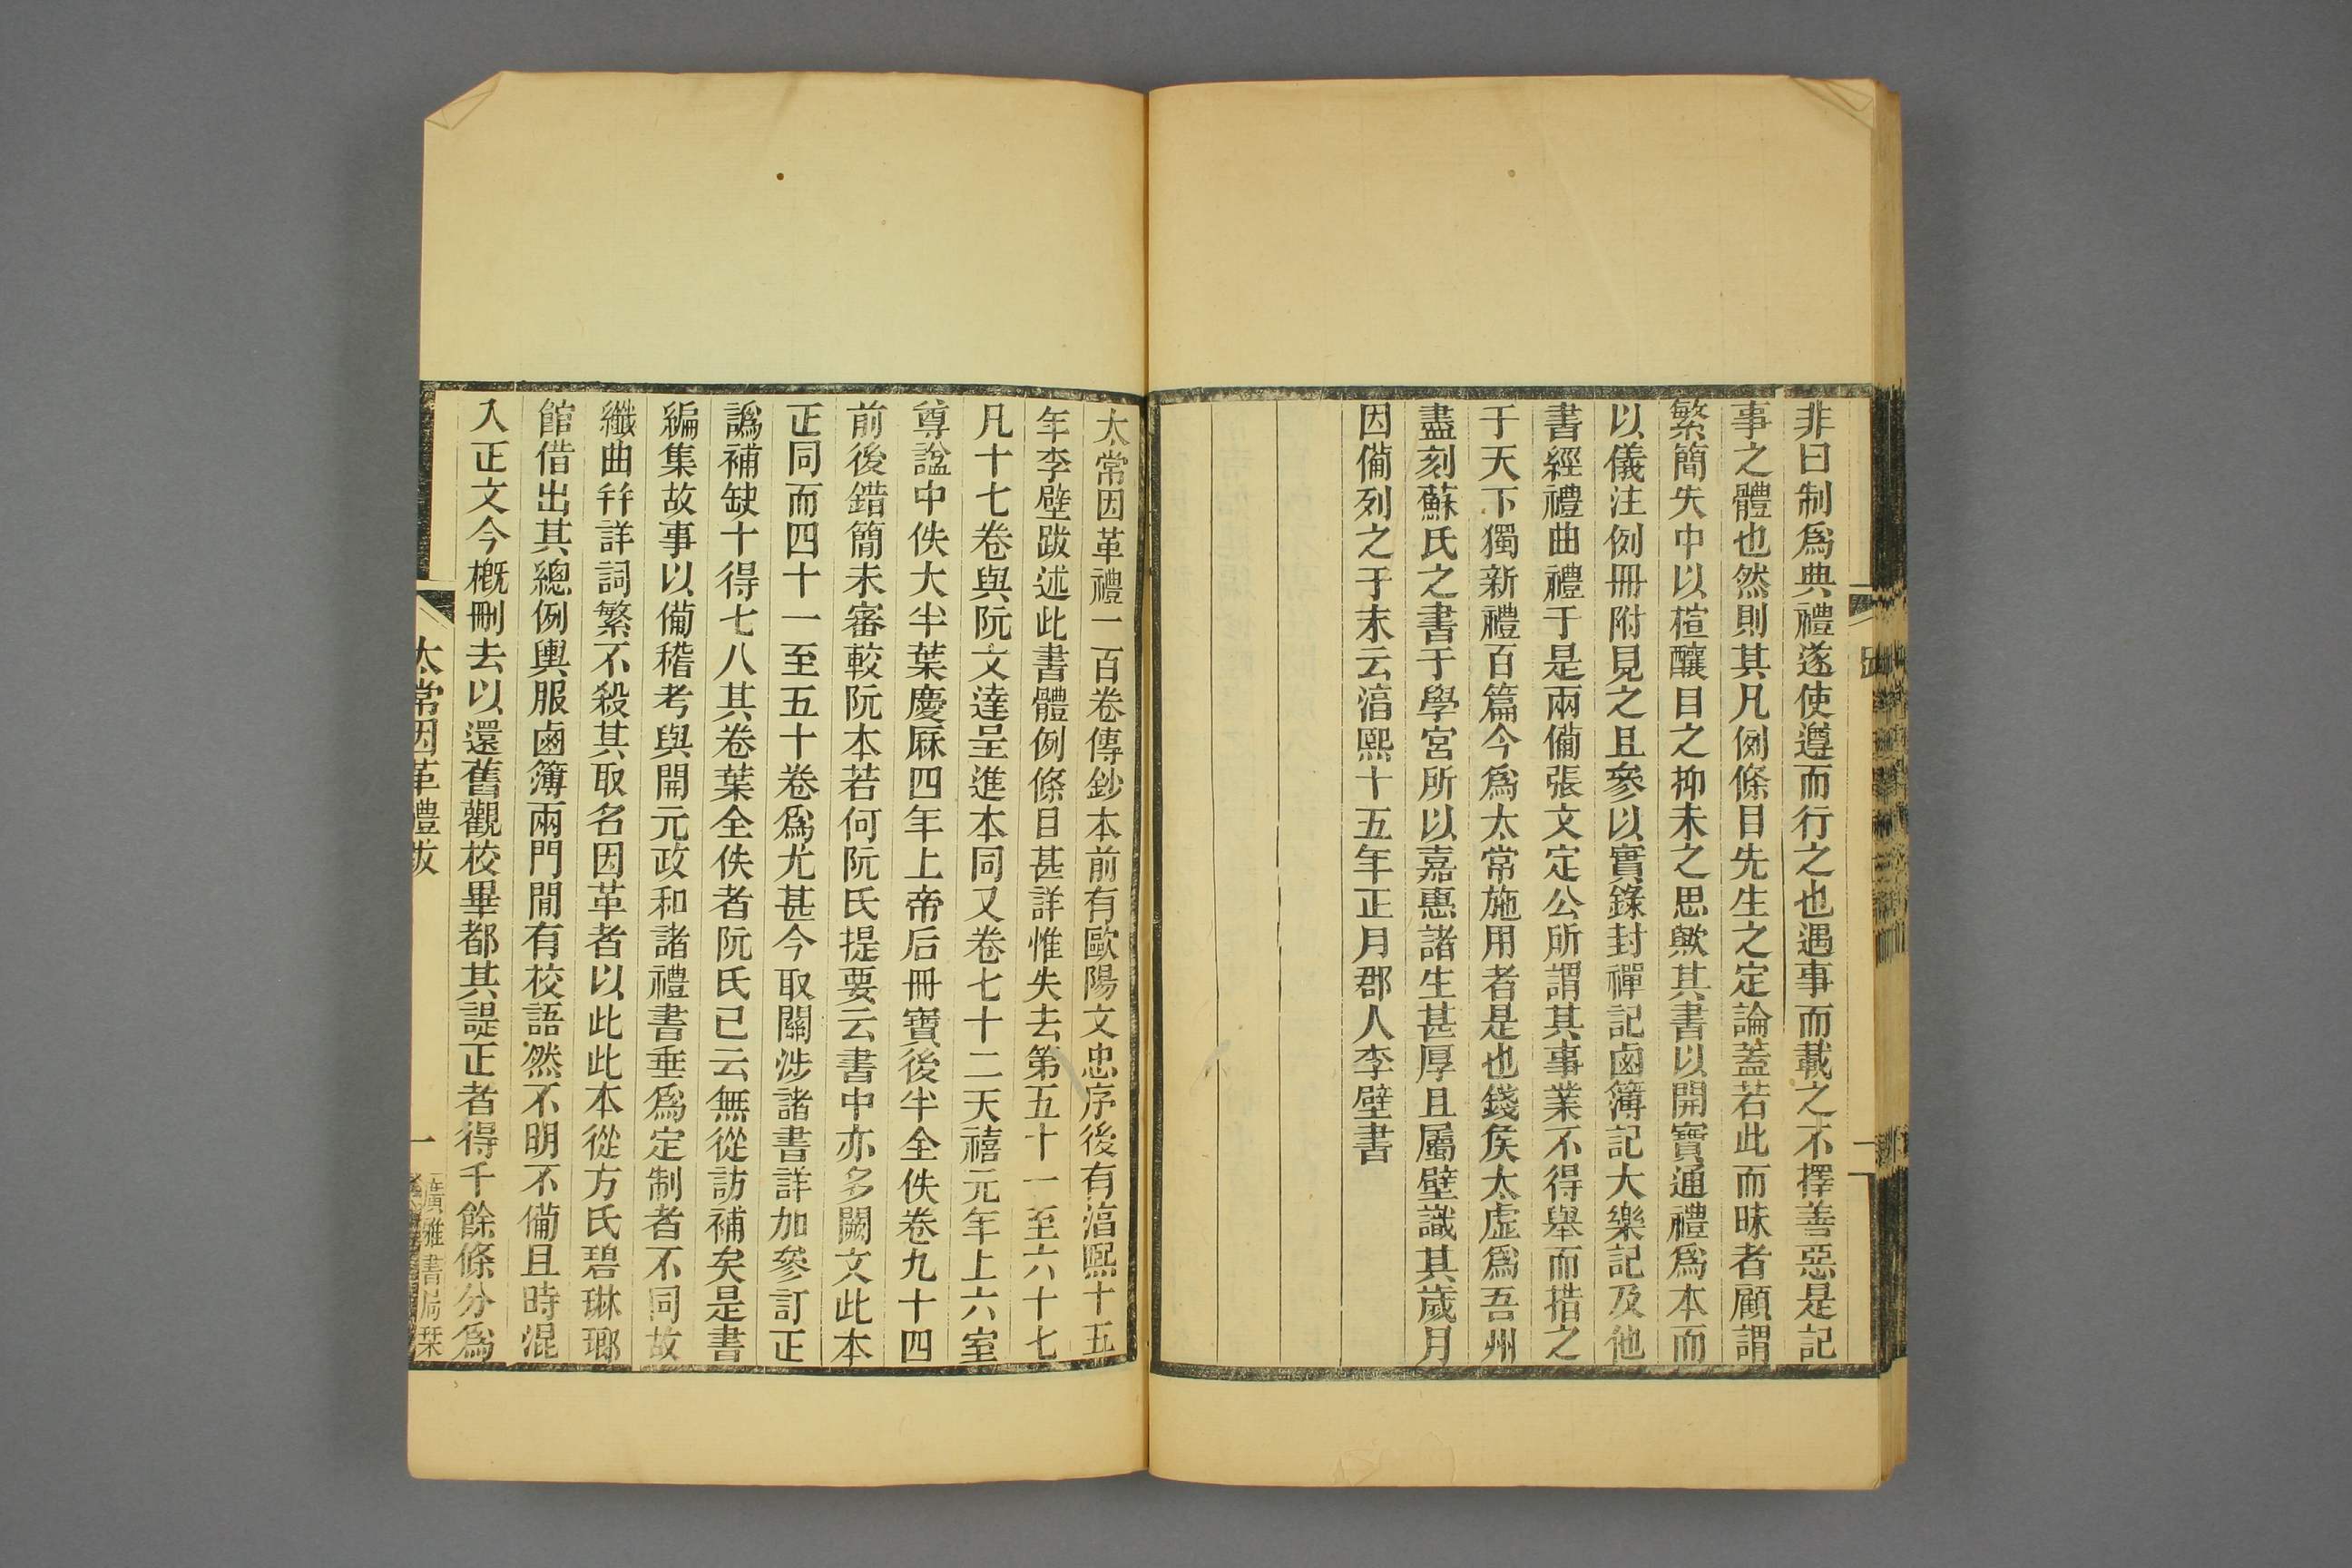 非曰制爲典禮遂使遵而行之也遇事而載之不擇善惡是記
事之體也然則其凡例條目先生之定論蓋若此而昧者顧謂
繁簡失中以樝釀目之抑未之思歟其書以開寶通禮爲本而
以儀注例冊附見之且參以實錄封禪記鹵簿記大樂記及他
書經禮曲禮于是兩備張文定公所謂其事業不得舉而措之
于天下獨新禮百篇今爲太常施用者是也錢矦太虛爲吾州
盡刻蘇氏之書于學宮所以嘉惠諸生甚厚且屬壁識其歲月
因備列之于末云湻熙十五年正月郡人李壁書
太常因革禮一百卷傳鈔本前有歐陽文忠序後有湻熙十五
年李壁跋述此書體例條目甚詳惟失去第五十一至六十七
凡十七卷與阮文達呈進本同又卷七十二天禧元年上六室
尊諡中佚大半葉慶厤四年上帝后冊寶後半全佚卷九十四
前後錯簡未審較阮本若何阮氏提要云書中亦多闕文此本
正同而四十一至五十卷爲尤甚今取關涉諸書詳加參訂正
譌補缺十得七八其卷葉全佚者阮氏已云無從訪補矣是書
編集故事以備稽考與開元政和諸禮書垂爲定制者不同故
纖曲幷詳詞繁不殺其取名因革者以此此本從方氏碧琳瑯
館借出其總例輿服鹵簿兩門閒有校語然不明不備且時混
入正文今概刪去以還舊觀校畢都其諟正者得千餘條分爲
太常因革禮跋
一
廣雅書局栞